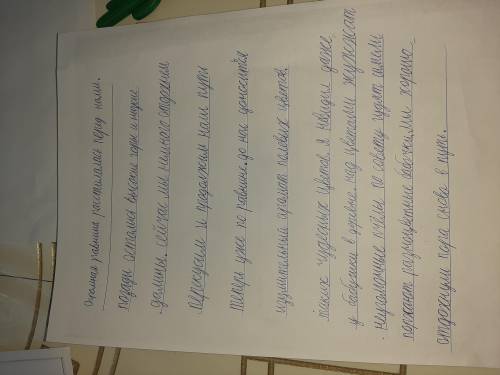 Огромная равнина расстилалась перед нами.
позади остались высокие горы и низкие
долины. сейчас мы немного отдохнём
перекусим и продолжим наш путь
теперь уже по равнине. до нас доносится
изумительный аромат полевых цветов.
таких чудесных цветов я невидил даже
у бабушки в деревне. над цветами жужжат
неугомонные пчёлы
порхают разноцветные бабочки. мы хорошо
отдохнули пора снова в путь.